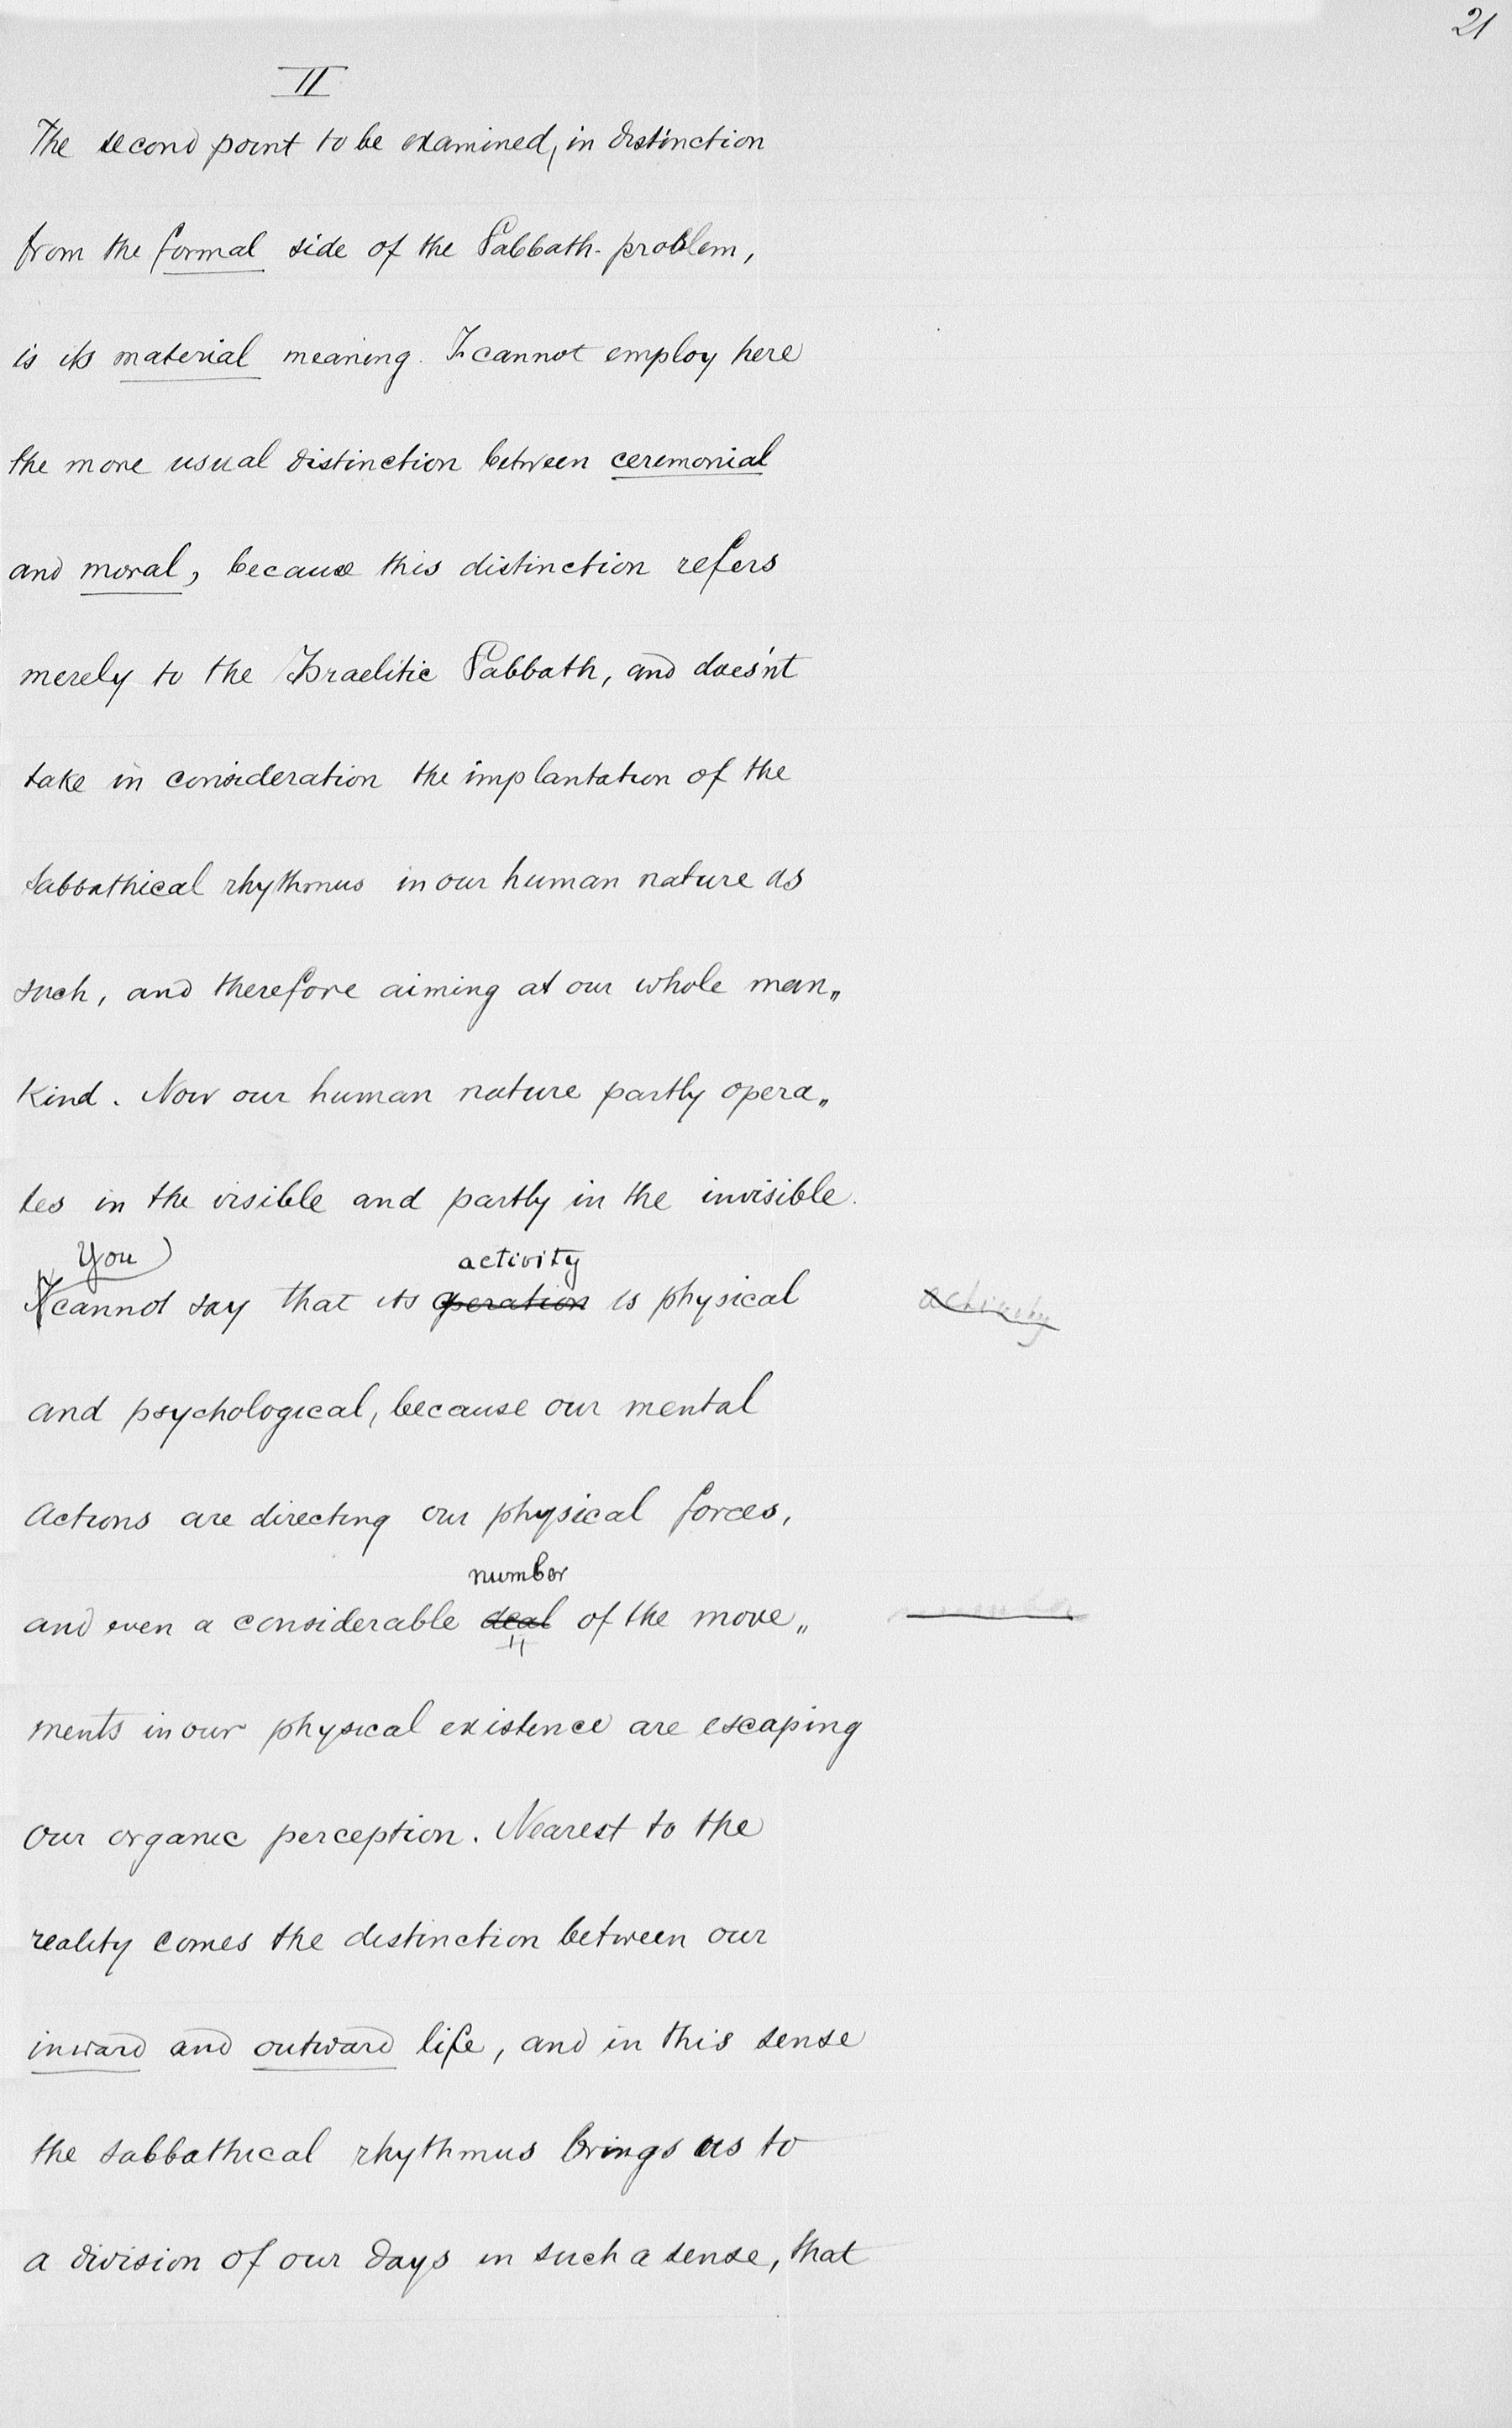 21
II
The second point to be examined, in distinction
from the formal side of the Sabbath-problem,
is its material meaning. I cannot employ here
the more usual distinction between ceremonial
and moral, because this distinction refers
merely to the Israelitic Sabbath, and does'nt
take in consideration the implantation of the
sabbathical rhythmus in our human nature as
such, and therefore aiming at our whole man„
kind. Now our human nature partly opera„
tes in the visible and partly in the invisible.
You activity
I cannot say that its operation is physical
activity
and psychological, because our mental
actions are directing our physical forces,
number
and even a considerable deal of the move„
ments in our physical existence are escaping
our organic perception. Nearest to the
reality comes the distinction between our
inward and outward life, and in this sense
the sabbathical rhythmus brings us to
a division of our days in such a sense, that